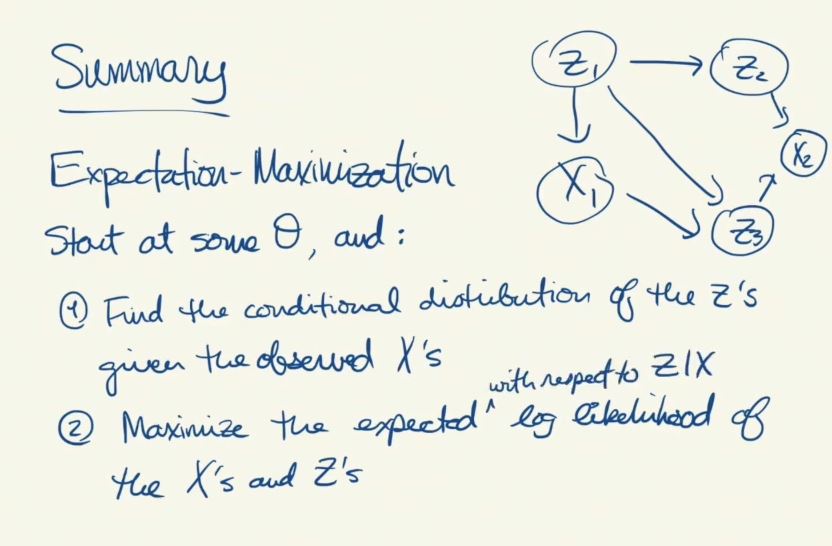 Summary
Z₁
Z₂
X₂
X₁
Z₃
Expectation-Maximization
Start at some θ, and:
① Find the conditional distribution of the Z's
given the observed X's
with respect to Z|X
② Maximize the expected ^ log likelihood of
the X's and Z's